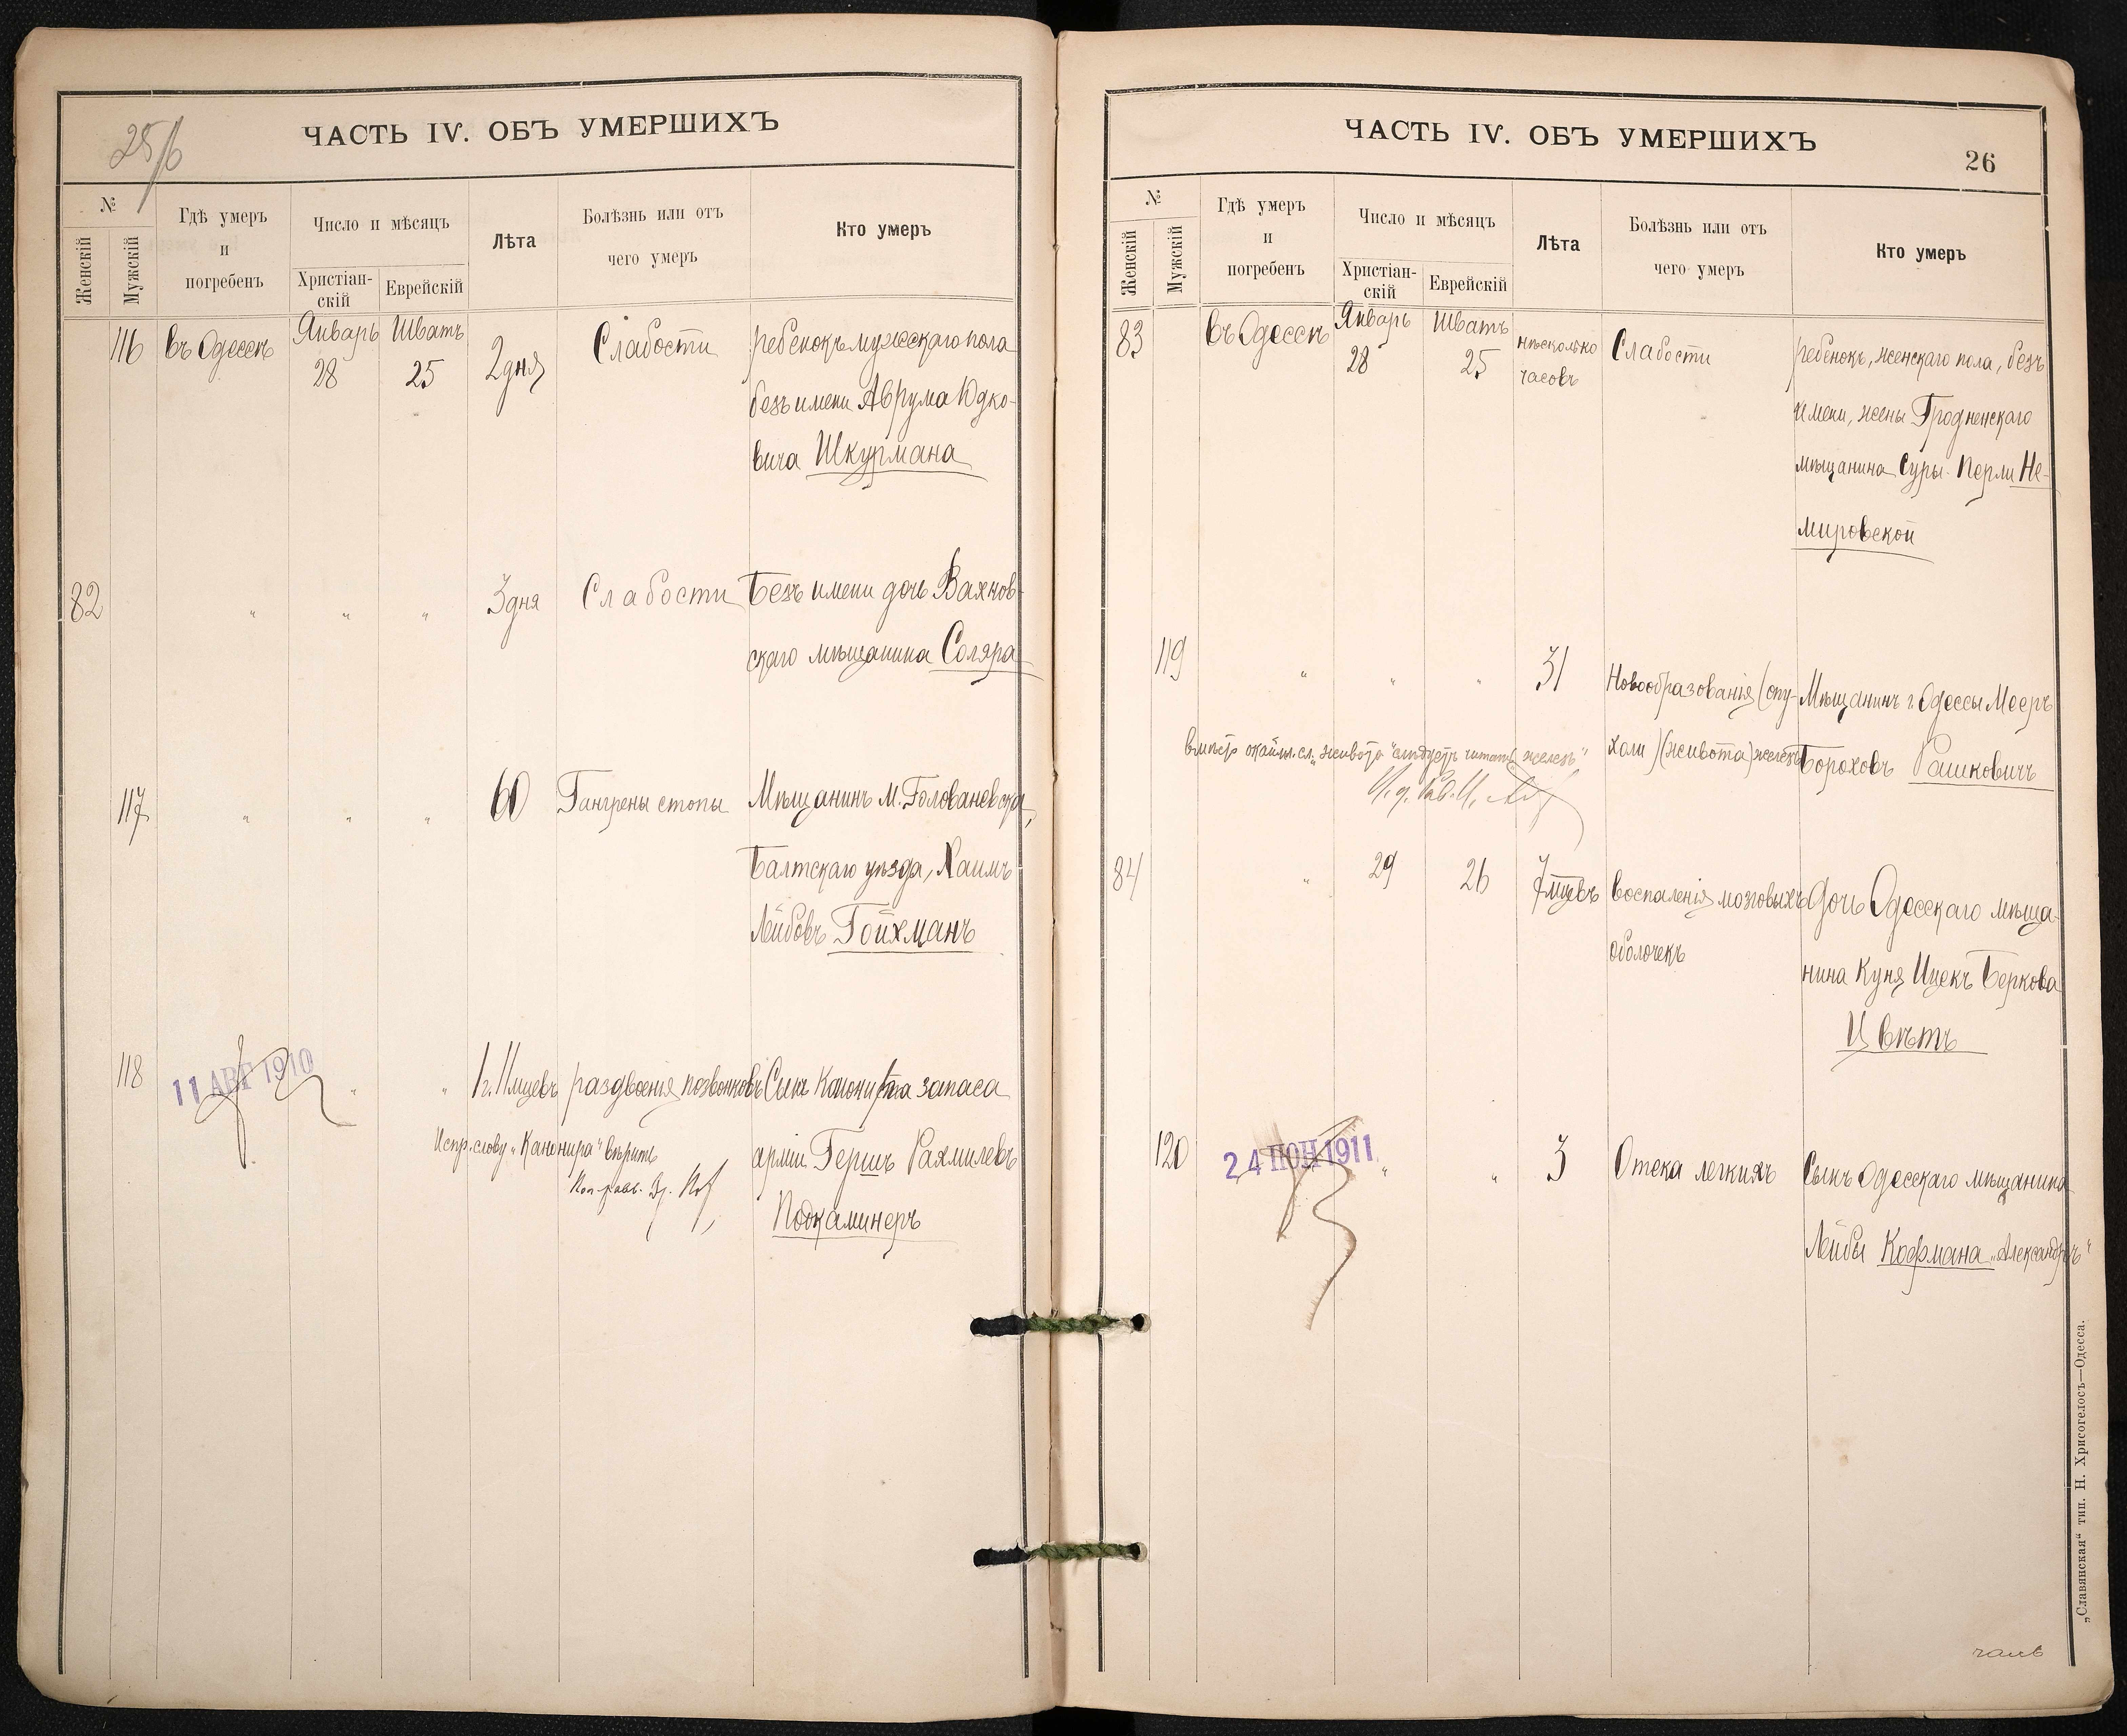 25/б
ЧАСТЬ IV. ОБЪ УМЕРШИХЪ
№
Женскій
Мужскій
Гдѣ умеръ
и
погребенъ
Число и мѣсяцъ
Христіан-
скій
Еврейскій
Лѣта
Болѣзнь или отъ
чего умеръ
Кто умеръ
116 въ Одессѣ Январь 28 Шватъ 25 2 дня Слабости ребенокъ мужескаго пола
безъ имени Аврума Юдко-
вича Шкурмана
82 " " " 3 дня Слабости Безъ имени дочь Вахнов-
скаго мѣщанина Соляра
117 " " " 60 Гангрены стопы Мѣщанинъ м. Голованевска,
Балтскаго уѣзда, Хаимъ
Лейбовъ Гойхманъ
118 " " 1 г. 11 мцевъ раздвоенія позвонковъ Сынъ запаса
11 АВГ 1910
Испр. слову „Канонира" вѣрить
арміи Гершъ Рахмилевъ
Подкаминеръ
ЧАСТЬ IV. ОБЪ УМЕРШИХЪ
26
№
Женскій
Мужскій
Гдѣ умеръ
и
погребенъ
Число и мѣсяцъ
Христіан-
скій
Еврейскій
Лѣта
Болѣзнь или отъ
чего умеръ
Кто умеръ
83 въ Одессѣ Январь 28 Шватъ 25 нѣсколько часовъ Слабости ребенокъ, женскаго пола, безъ
имени, жены Гродненскаго
мѣщанина Суры-Перли Не-
мировской
119 " " " 31 Новообразованія (опу- Мѣщанинъ г. Одессы Мееръ
холи) (живота) железъ Бороховъ Рашковичъ
вмѣсто сл. „живота" слѣдуетъ читать „железъ"
84 " 29 26 7 мцевъ воспаленія мозговыхъ Дочь Одесскаго мѣща-
оболочекъ нина Куня Ицекъ Беркова
Цвѣтъ
120 " " 3 Отека легкихъ Сынъ Одесскаго мѣщанина
24 ІЮН 1911
Лейбы Кофмана „Александръ"
„Славянская" тип. Н. Хрисогелосъ—Одесса.